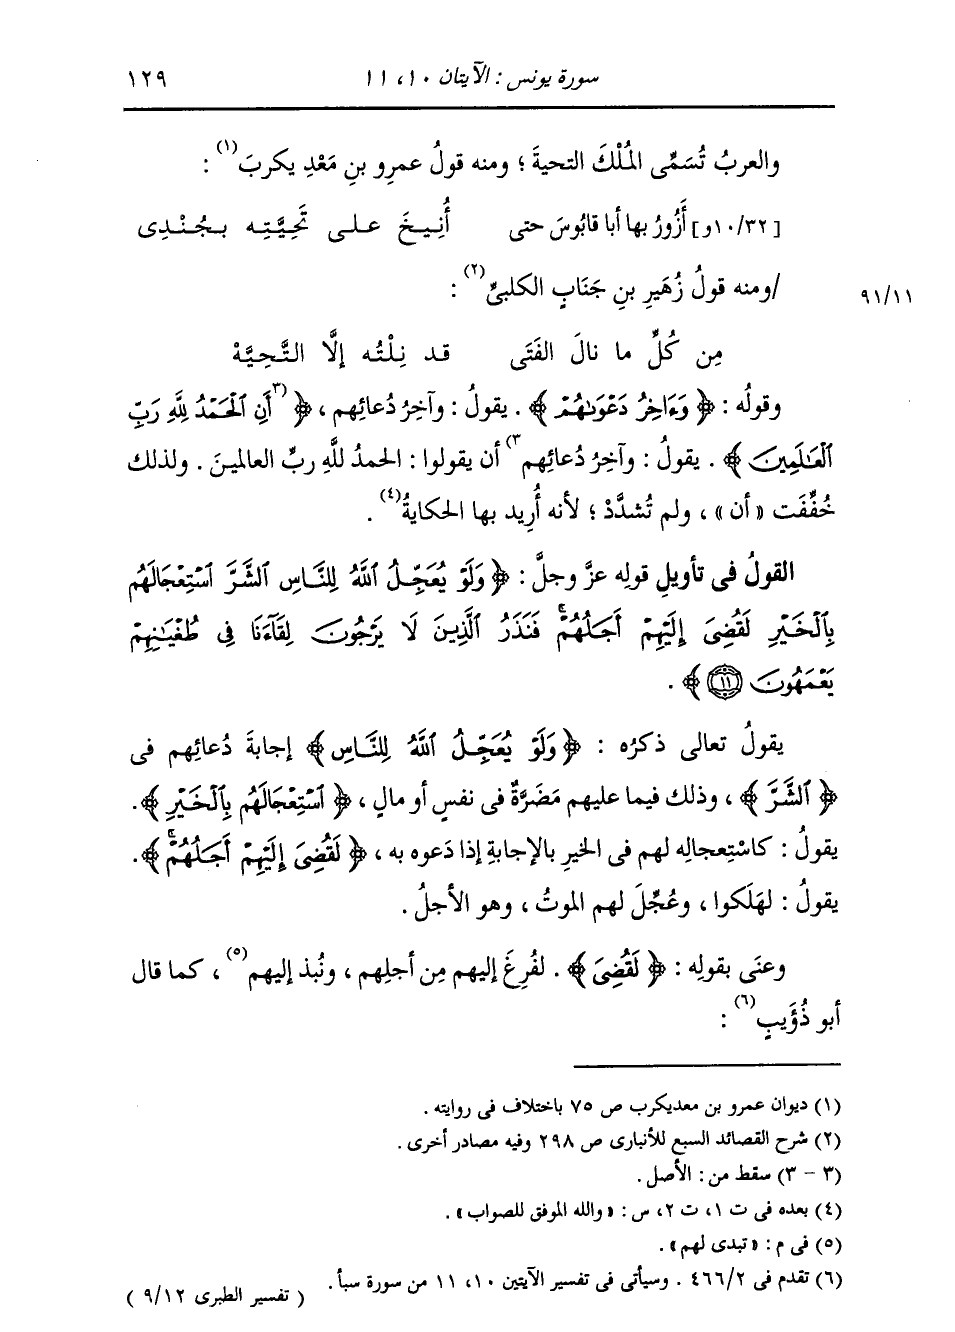 سورة يونس : الآيتان ١٠، ١١ ١٢٩
والعربُ تُسَمِّى المُلْكَ التحيةَ ؛ ومنه قولُ عمرِو بنِ مَعْدِ يكربَ(١) :
[١٠/٣٢و] أَزُورُ بها أبا قابُوسَ حتى أُنِيخَ على تَحِيَّتِه بجُنْدِى
٩١/١١ /ومنه قولُ زُهَيرِ بنِ جَنَابٍ الكلبىِّ(٢) :
مِن كُلِّ ما نالَ الفَتَى قد نِلْتُه إلَّا التَّحِيَّهْ
وقولُه : ﴿ وَءَاخِرُ دَعْوَىٰهُمْ ﴾ . يقولُ : وآخِرُ دُعائِهم ، ﴿ (٣أَنِ ٱلْحَمْدُ لِلَّهِ رَبِّ
ٱلْعَٰلَمِينَ ﴾ . يقولُ : وآخِرُ دُعائِهم٣) أن يقولوا : الحمدُ للَّهِ ربِّ العالمين . ولذلك
خُفِّفَت « أن » ، ولم تُشدَّدْ ؛ لأنه أُرِيد بها الحكايةُ(٤) .
القولُ فى تأويلِ قولِه عزَّ وجلَّ : ﴿ وَلَوْ يُعَجِّلُ ٱللَّهُ لِلنَّاسِ ٱلشَّرَّ ٱسْتِعْجَالَهُم
بِٱلْخَيْرِ لَقُضِىَ إِلَيْهِمْ أَجَلُهُمْۖ فَنَذَرُ ٱلَّذِينَ لَا يَرْجُونَ لِقَآءَنَا فِى طُغْيَٰنِهِمْ
يَعْمَهُونَ ۝١١ ﴾ .
يقولُ تعالى ذكرُه : ﴿ وَلَوْ يُعَجِّلُ ٱللَّهُ لِلنَّاسِ ﴾ إجابةَ دُعائِهم فى
﴿ ٱلشَّرَّ ﴾ ، وذلك فيما عليهم مَضَرَّةٌ فى نفسٍ أو مالٍ ، ﴿ ٱسْتِعْجَالَهُم بِٱلْخَيْرِ ﴾ .
يقولُ : كاسْتِعجالِه لهم فى الخيرِ بالإجابةِ إذا دَعوه به ، ﴿ لَقُضِىَ إِلَيْهِمْ أَجَلُهُمْۖ ﴾ .
يقولُ : لهَلَكوا ، وعُجِّلَ لهم الموتُ ، وهو الأجلُ .
وعنَى بقولِه : ﴿ لَقُضِىَ ﴾ . لفُرِغَ إليهم مِن أجلِهم ، ونُبذ إليهم(٥) ، كما قال
أبو ذُؤَيبٍ(٦) :
(١) ديوان عمرو بن معديكرب ص ٧٥ باختلاف فى روايته .
(٢) شرح القصائد السبع للأنبارى ص ٢٩٨ وفيه مصادر أخرى .
(٣ - ٣) سقط من : الأصل .
(٤) بعده فى ت ١، ت ٢، س : « والله الموفق للصواب » .
(٥) فى م : « تبدى لهم » .
(٦) تقدم فى ٤٦٦/٢ . وسيأتى فى تفسير الآيتين ١٠، ١١ من سورة سبأ .
( تفسير الطبرى ٩/١٢ )